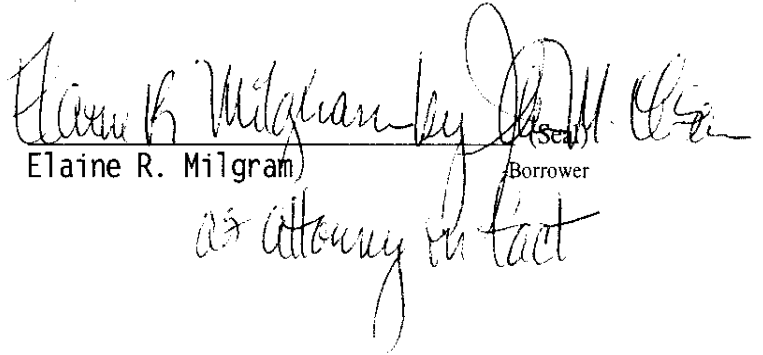 Elaine R Milgram by M. 
(Seal)
Elaine R. Milgram -Borrower
as attorney in fact